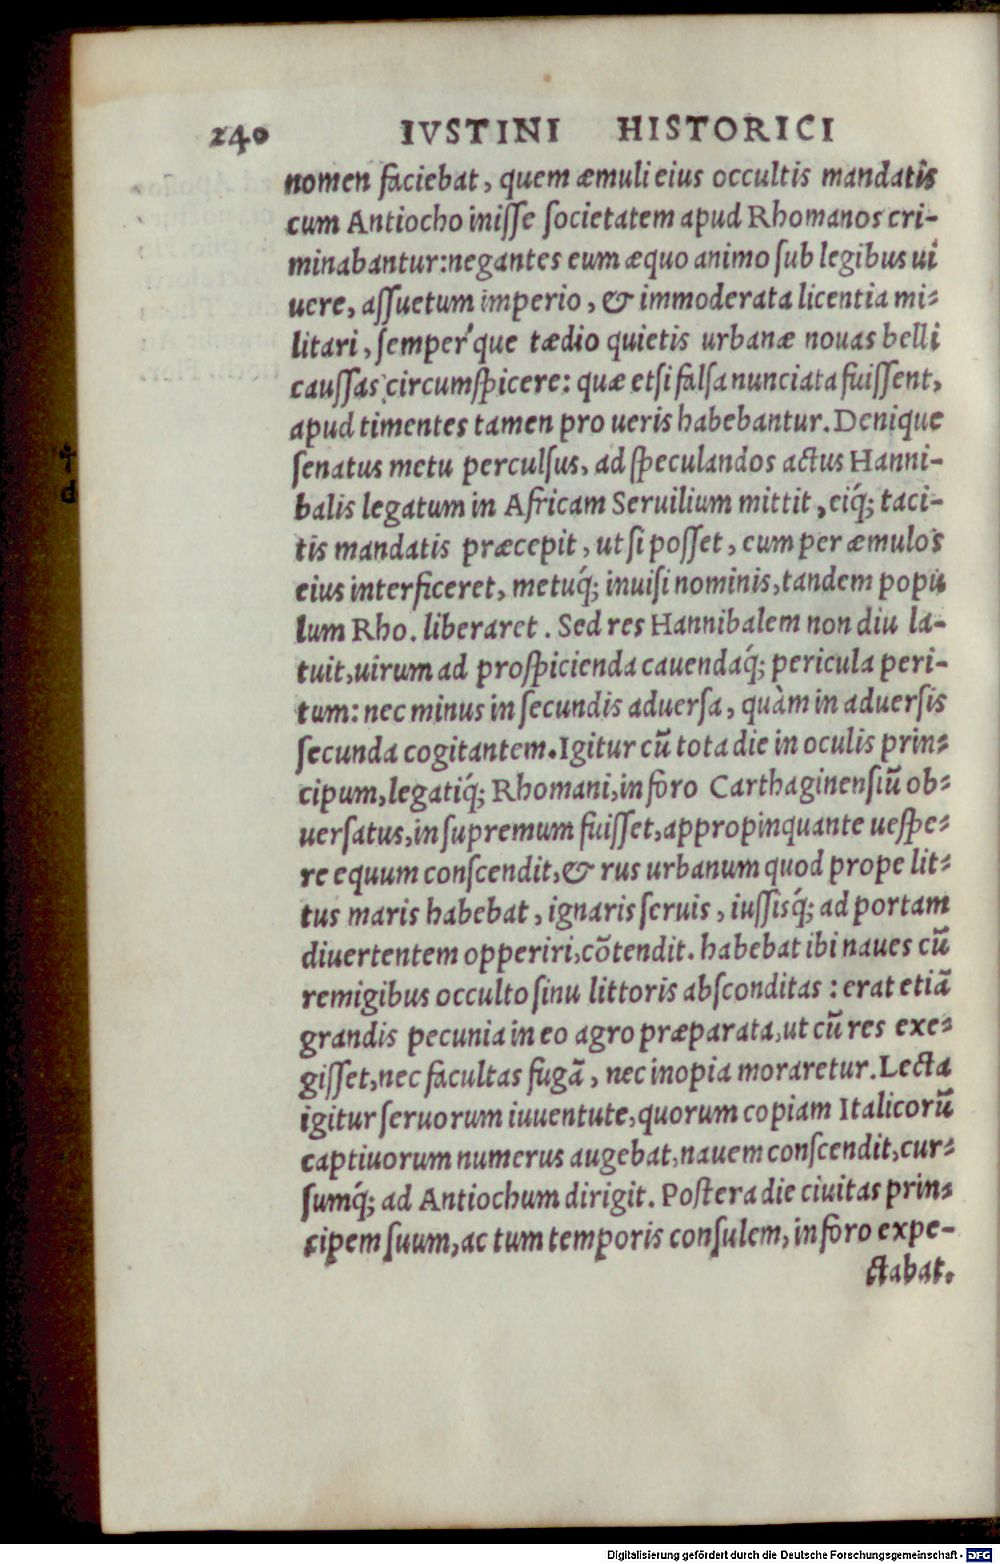 240 IVSTINI HISTORICI
nomen faciebat, quem æmuli eius occultis mandatis
cum Antiocho inisse societatem apud Rhomanos cri-
minabantur: negantes eum æquo animo sub legibus ui
uere, assuetum imperio, & immoderata licentia mi-
litari, semper'que tædio quietis urbanæ nouas belli
caussas circumspicere: quæ etsi falsa nunciata fuissent,
apud timentes tamen pro ueris habebantur. Denique
senatus metu perculsus, ad speculandos actus Hanni-
balis legatum in Africam Seruilium mittit, eiq́; taci-
tis mandatis præcepit, ut si posset, eum per æmulos
eius interficeret, metuq́; inuisi nominis, tandem popu
lum Rho. liberaret. Sed res Hannibalem non diu la-
tuit, uirum ad prospicienda cauendaq́; pericula peri-
tum: nec minus in secundis aduersa, quàm in aduersis
secunda cogitantem. Igitur cũ tota die in oculis prin-
cipum, legatiq́; Rhomani, in foro Carthaginensiũ ob-
uersatus, in supremum fuisset, appropinquante uespe-
re equum conscendit, & rus urbanum quod prope lit-
tus maris habebat, ignaris seruis, iussisq́; ad portam
diuertentem opperiri, cõtendit. habebat ibi naues cũ
remigibus occulto sinu littoris absconditas: erat etiã
grandis pecunia in eo agro præparata, ut cũ res exe-
gisset, nec facultas fugã, nec inopia moraretur. Lecta
igitur seruorum iuuentute, quorum copiam Italicorũ
captiuorum numerus augebat, nauem conscendit, cur-
sumq́; ad Antiochum dirigit. Postera die ciuitas prin-
cipem suum, ac tum temporis consulem, in foro expe-
ctabat.
Digitalisierung gefördert durch die Deutsche Forschungsgemeinschaft - DFG